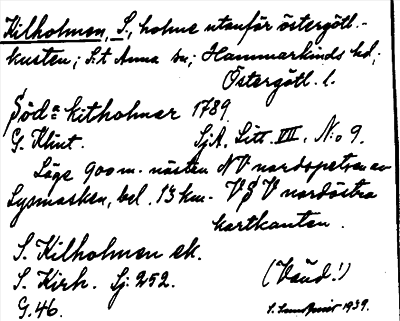 Kilholmen, S., holme utanför östergötl.-
kusten; S:t Anna sn; Hammarkinds hd;
Östergötl. l.
Söd:a kitholmar 1789
G. Klint. SjA. Litt. VII, N:o 9.
Läge 900 m. nästen NV nordspetsen av
Lysmasken, bel. 13 km. VSV nordöstra
kartkanten.
S. Kilholmen ek.
S. Kirh. Sj: 252. (Vänd!)
G. 46. S. 1939.